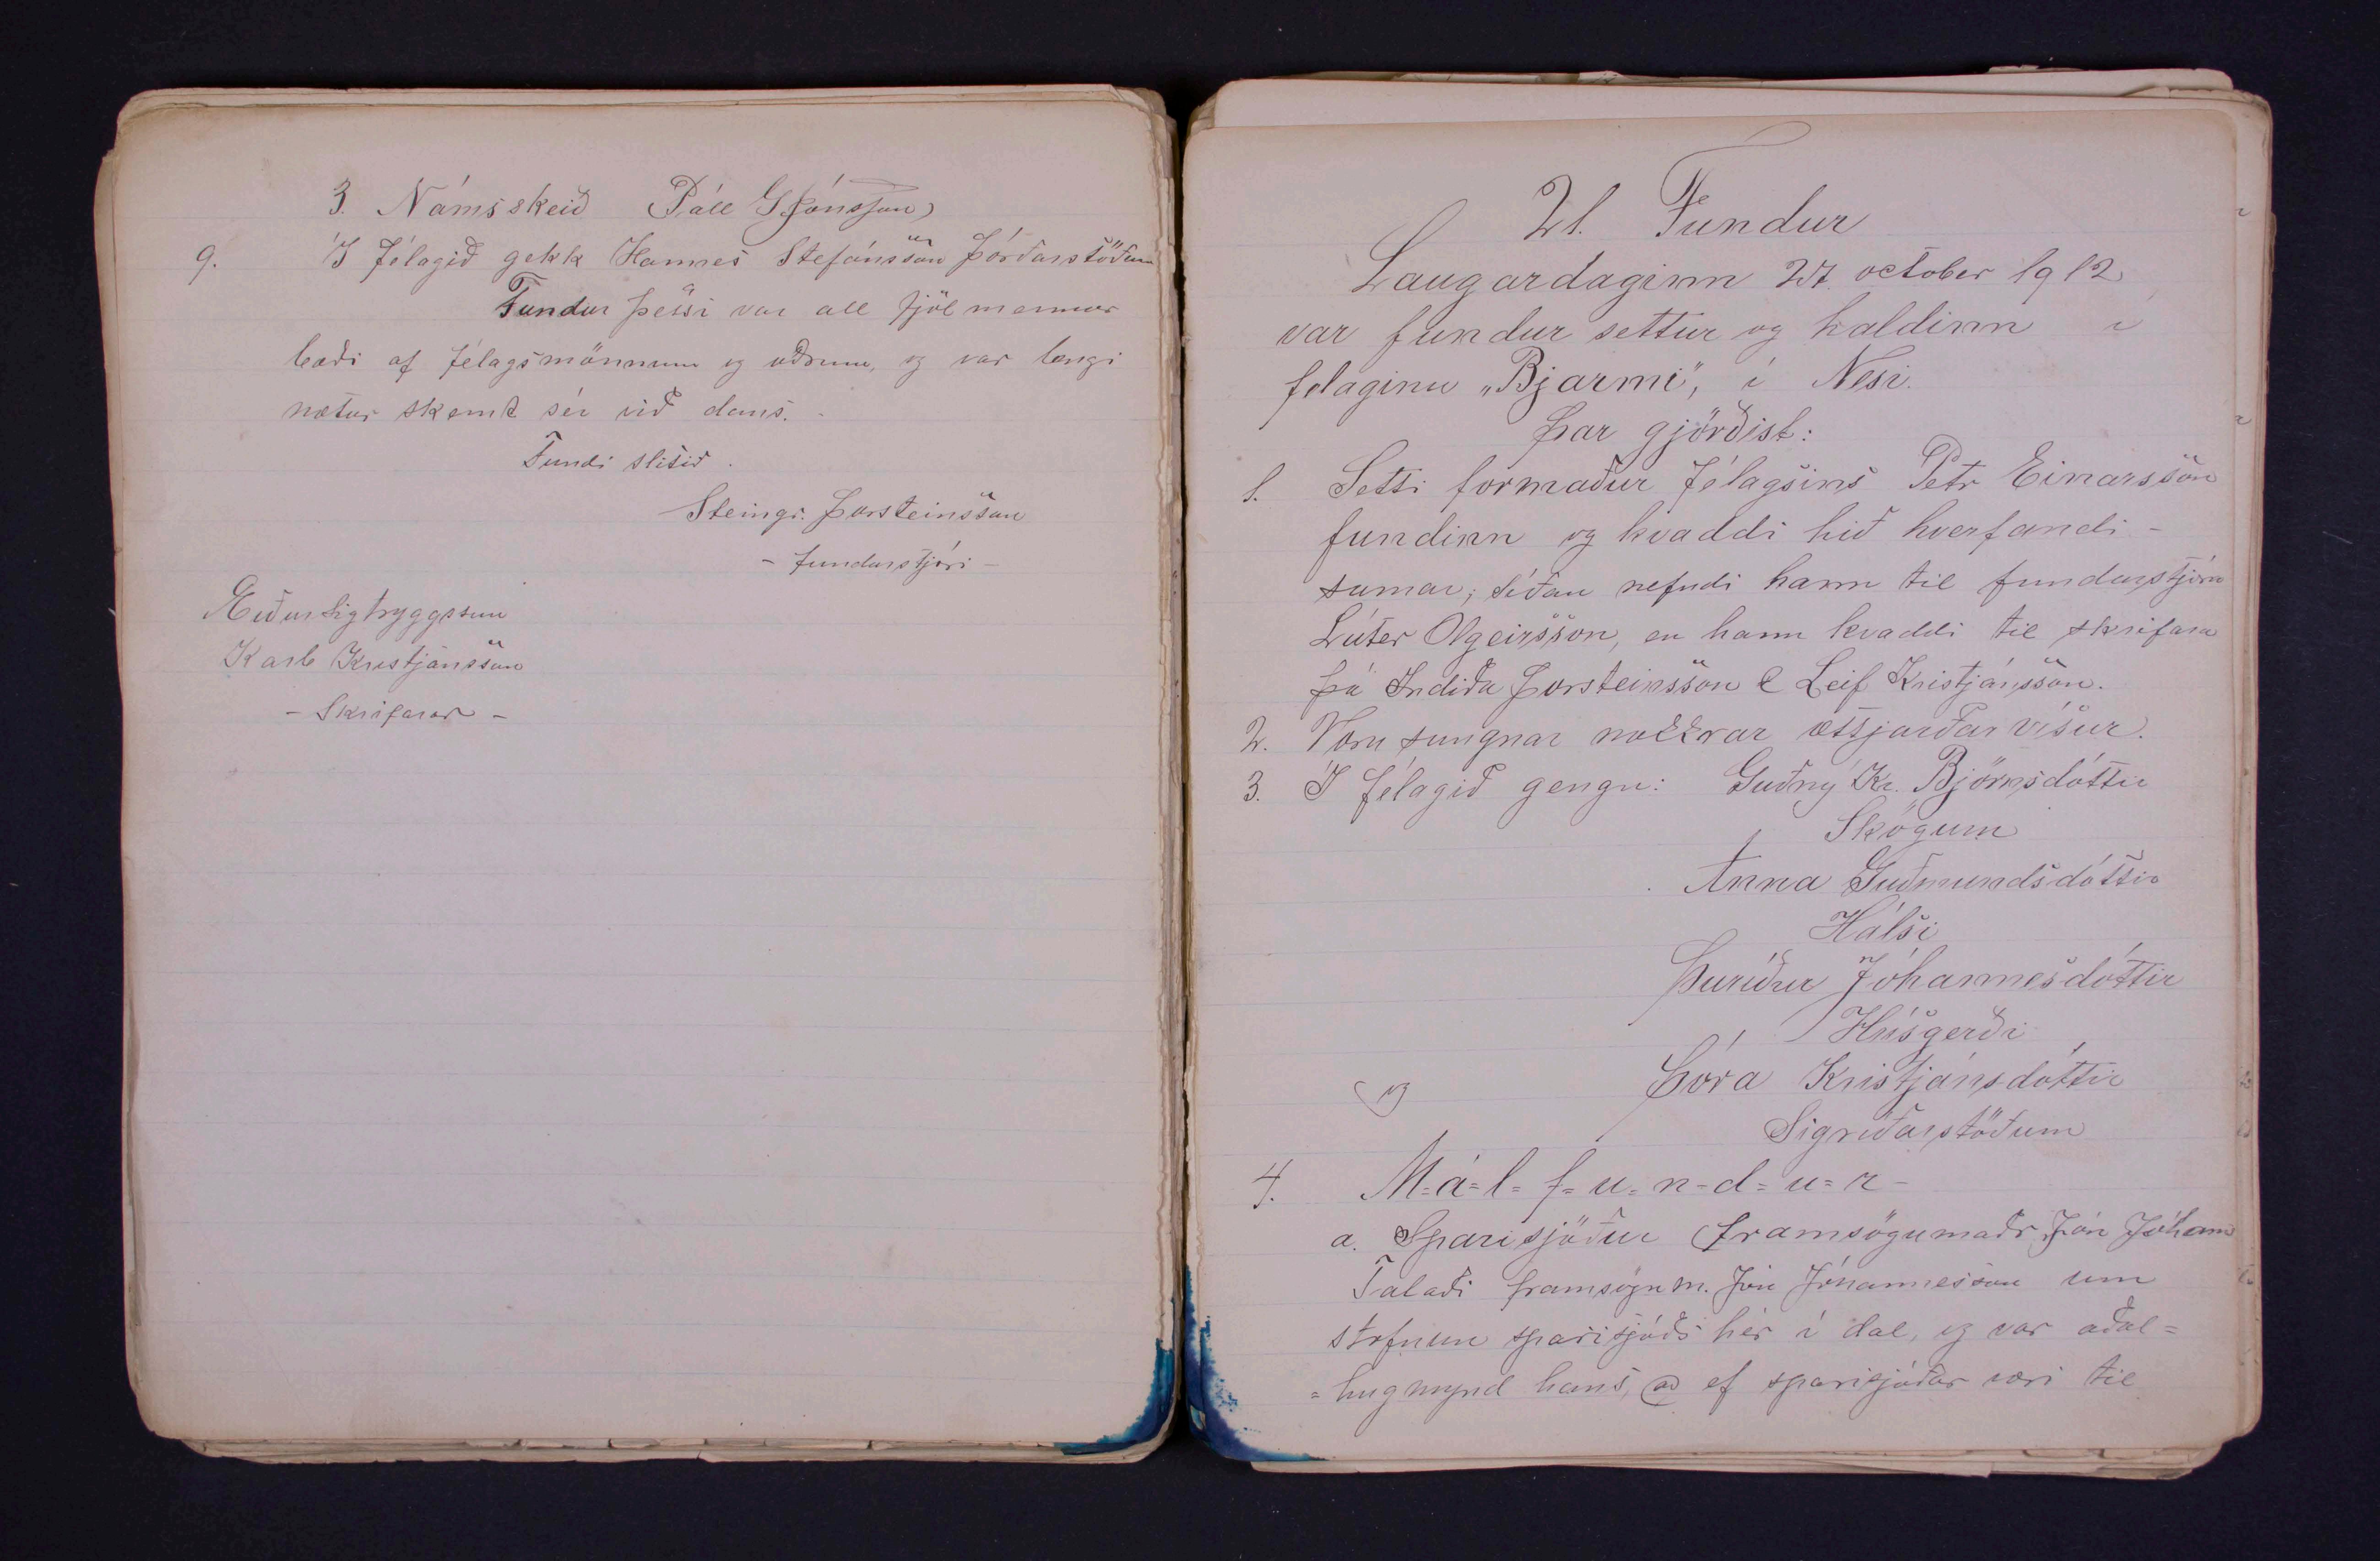 3. Námsskeið Páll G Jónsson)
9. Í félagið gekk Hannes Stefánsson Þórðarstöðum
Fundur þessi var all fjölmennur
bæði af félagsmönnum og öðrum, og var lengi
nætur skemt sér við dans.
Fundi slitið.
Steingr. Þorsteinsson
- fundarstjóri -
Eiður Sigtryggsson
Karl Kristjánsson
- Skrifarar -
21. Fundur
Laugardaginn 27. october 1912
var fundur settur og haldinn í
felaginu „Bjarmi", í Nesi.
Þar gjörðist:
1. Setti formaður félagsins Petr Einarsson
fundinn og kvaddi hið hverfandi -
sumar; síðan nefndi hann til fundarstjóra
Lúter Olgeirsson, en hann kvaddi til skrifara
þá Indiða Þorsteinsson & Leif Kristjánsson.
2. Voru sungnar nokkrar ættjarðar vísur.
3. Í félagið gengu: Guðný Kr. Björnsdóttir
Skógum
Anna Guðmundsdóttir
Hálsi
Þuríður Jóhannesdóttir
Húsgerði
og Þóra Kristjánsdóttir
Sigríðarstöðum
4. M=á=l=f=u=n=d=u=r-
a. Sparisjóður (framsögumaðr Jón Jóhann
Talaði framsögum. Jón Jóhannesson um
stofnun sparisjóðs hér í dal, og var aðal=
=hugmynd hans, að ef sparisjóður væri til